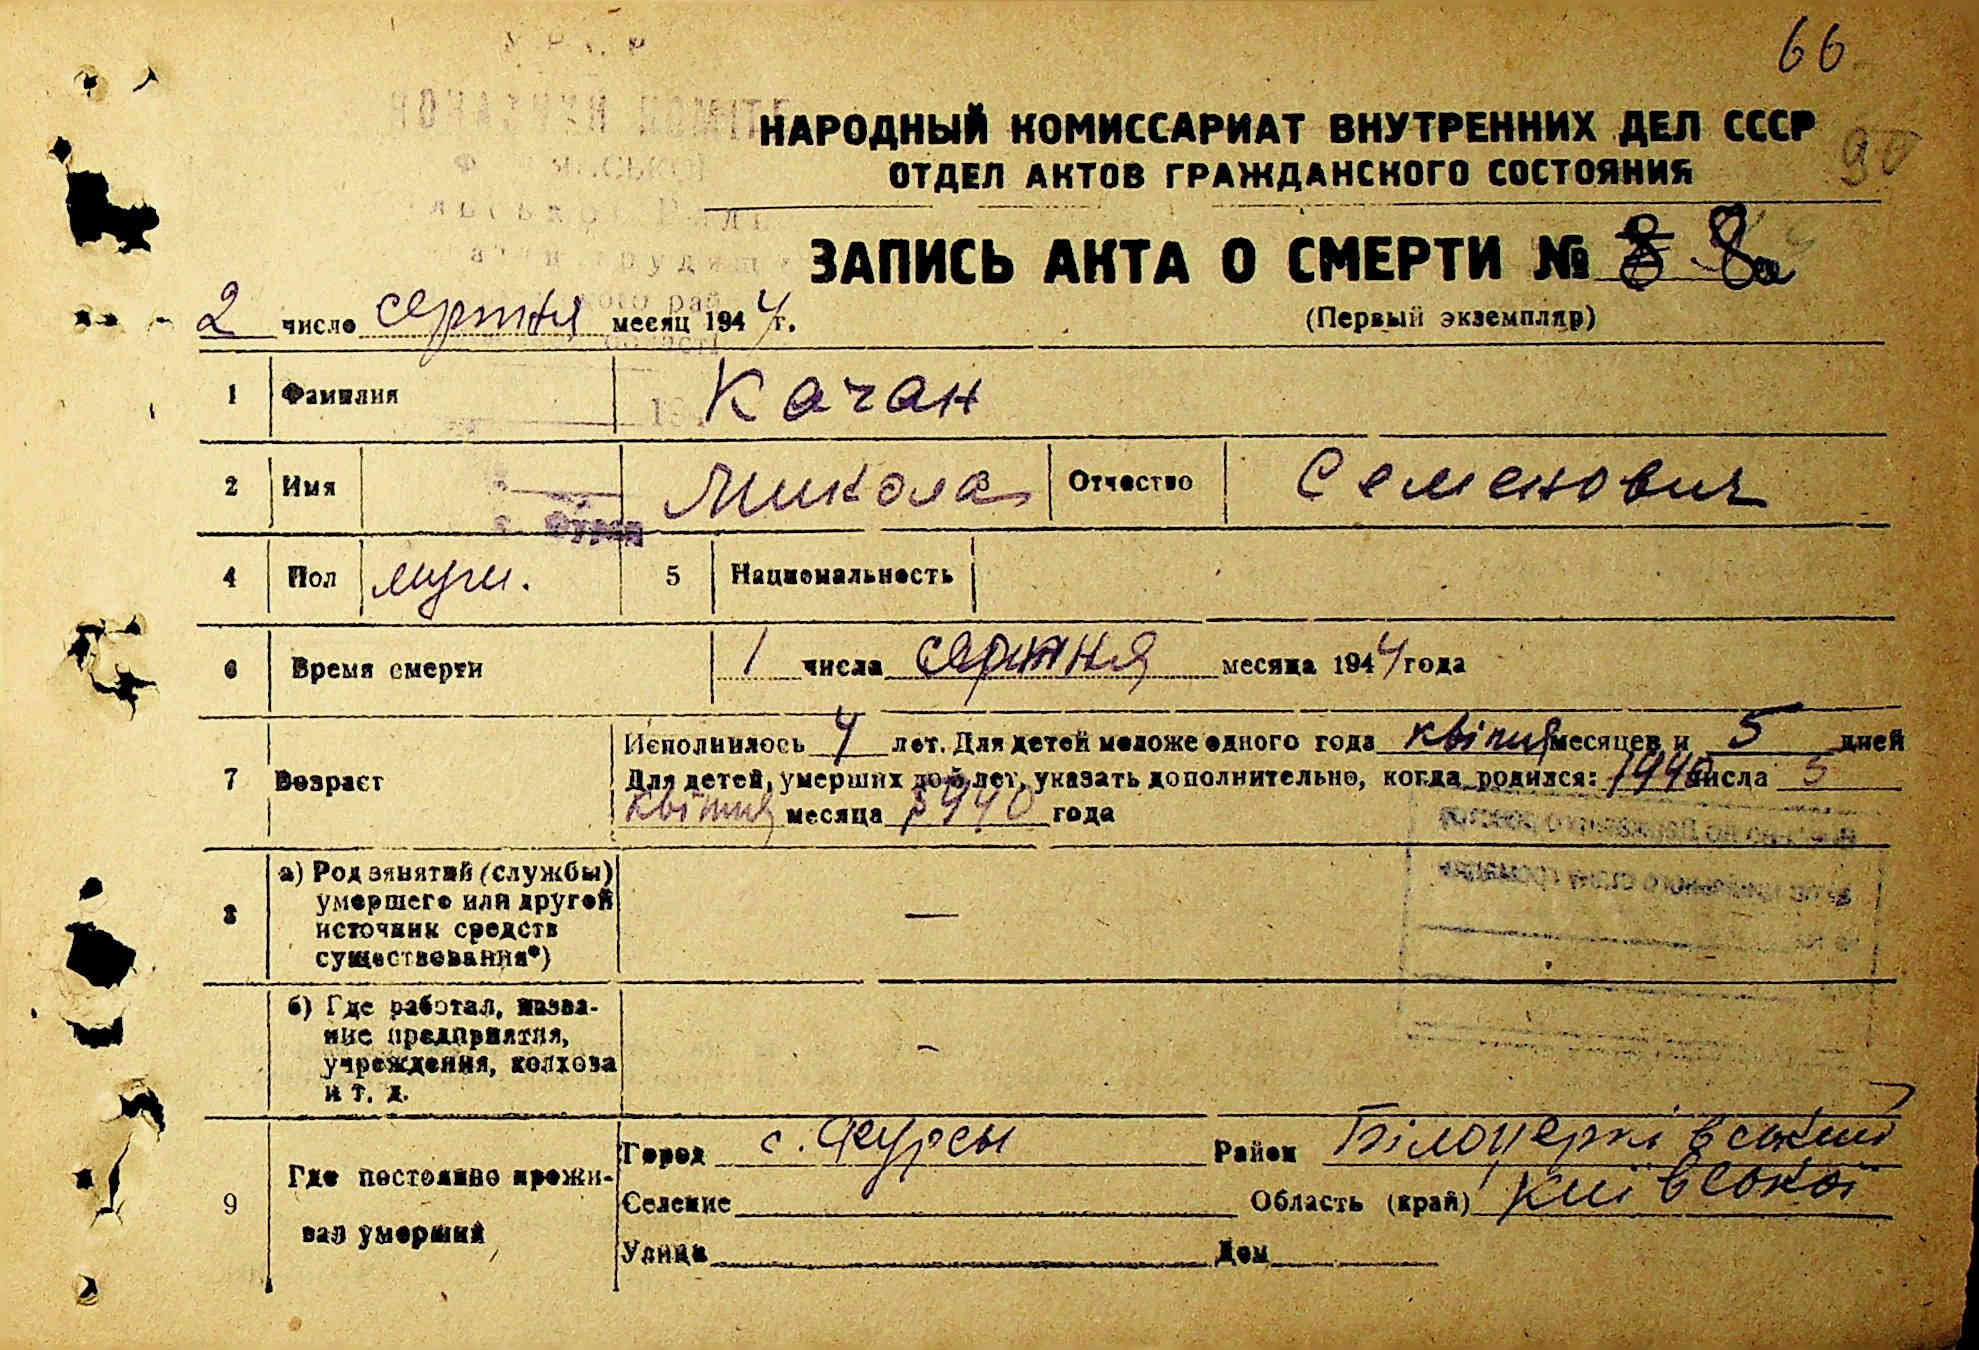 66
НАРОДНЫЙ КОМИССАРИАТ ВНУТРЕННИХ ДЕЛ СССР
90
ОТДЕЛ АКТОВ ГРАЖДАНСКОГО СОСТОЯНИЯ
ЗАПИСЬ АКТА О СМЕРТИ № 8 8а
2 число серпня месяц 1944 г.
(Первый экземпляр)
1 Фамилия Качан
2 Имя Микола Отчество Семенович
4 Пол муж. 5 Национальность
6 Время смерти 1 числа серпня месяца 1944 года
Исполнилось 4 лет. Для детей моложе одного года квітня месяцев и 5 дней
7 Возраст Для детей, умерших до 5 лет, указать дополнительно, когда родился: 1940 числа 5
квітня месяца 1940 года
8 а) Род занятий (службы) умершего или другой источник средств существования*) —
б) Где работал, название предприятия, учреждения, колхоза и т. д. –
9 Где постоянно проживал умерший
Город с. Фурсы Район Білоцерківський
Селение Область (край) Київської
Улица Дом